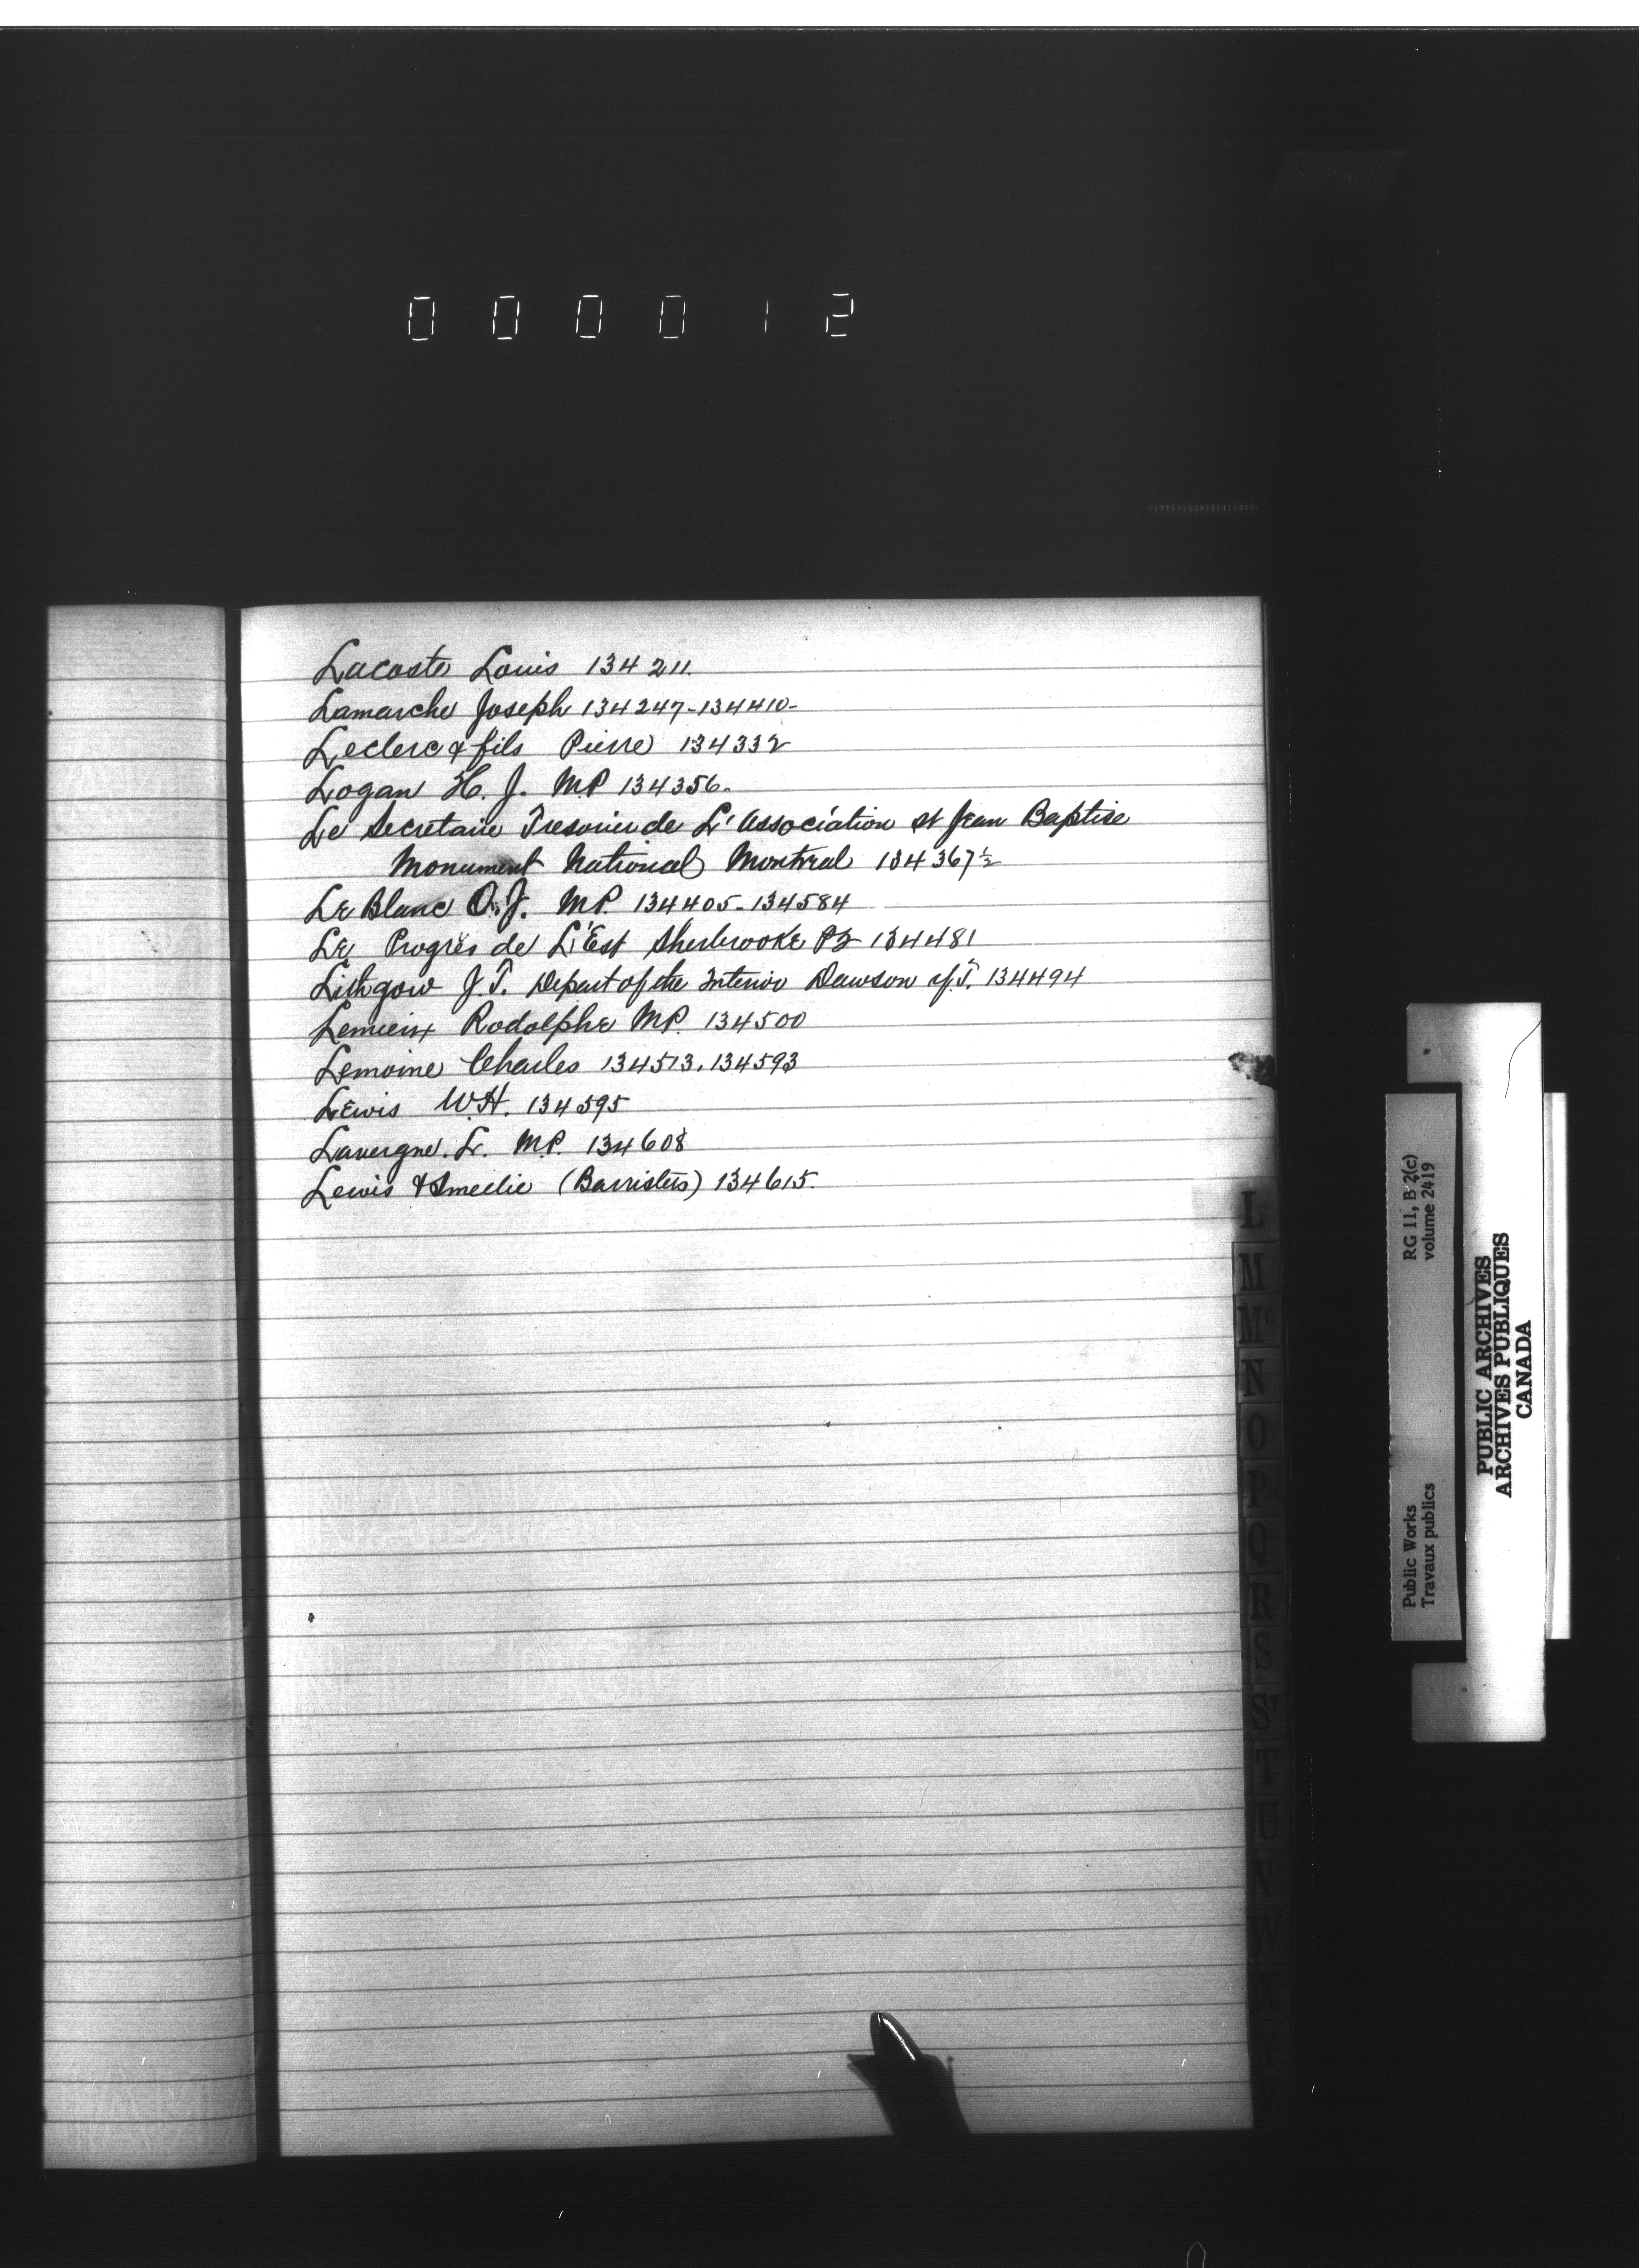 000012
Lacoste Louis 134211.
Lamarche Joseph 134247-134410-
Leclerc & fils Pierre 134332
Logan H. J. MP 134356.
Le Secretaire Tresorier de L'Association St Jean Baptise
Monument National Montreal 134367½
Le Blanc O. J. MP. 134405-134584
Le Progrès de L'Est Sherbrooke PQ 134481
Lithgow J. T. Depart of the Interior Dawson Y.T. 134494
Lemieux Rodolphe MP. 134500
Lemoine Charles 134513. 134593
Lewis W.H. 134595
Lavergne. L. M.P. 134608
Lewis & Smellie (Barristers) 134615.
L
M
Mc
N
O
P
Q
R
S
ST
T
U
V
W
Public Works RG 11, B 2(c)
Travaux publics volume 2419
PUBLIC ARCHIVES
ARCHIVES PUBLIQUES
CANADA